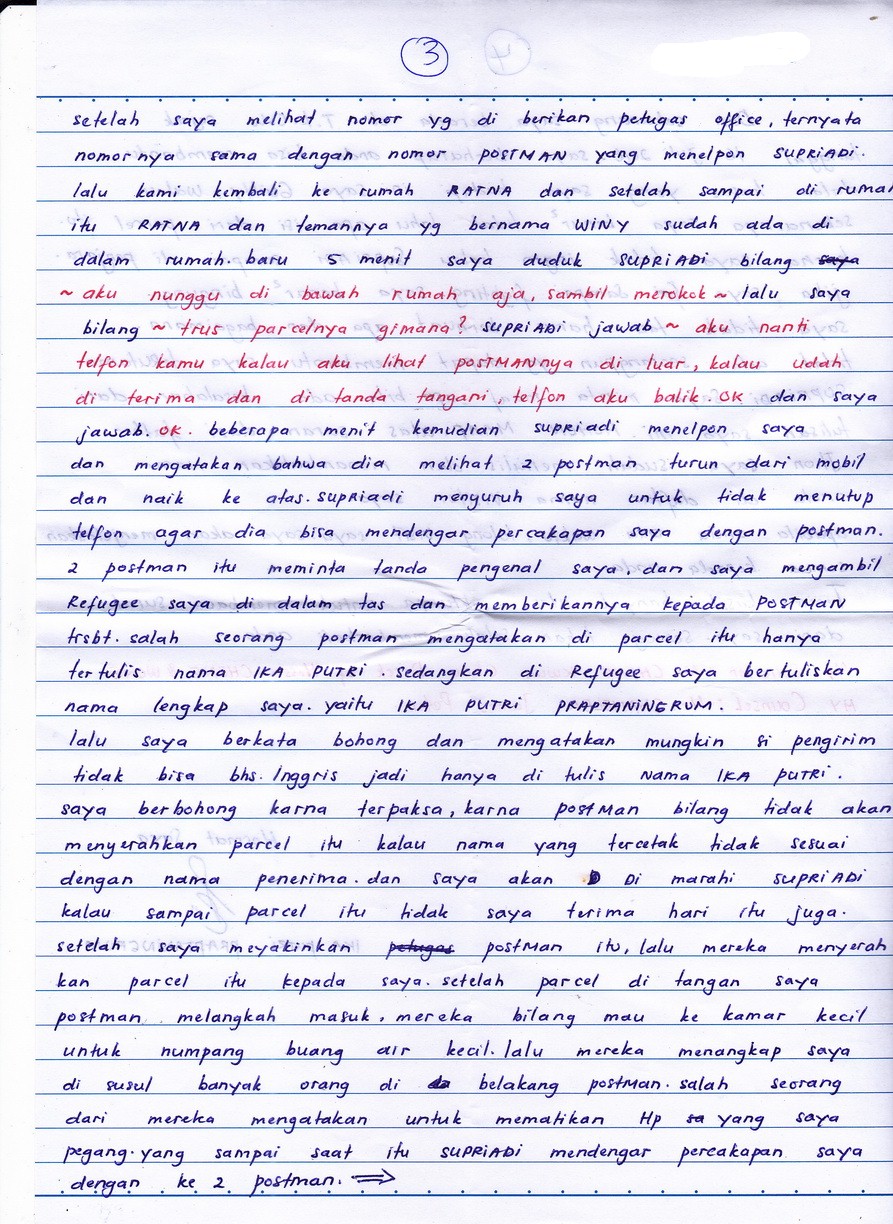 3
setelah saya melihat nomor yg di berikan petugas office, ternyata
nomornya sama dengan nomor POSTMAN yang menelpon SUPRIADI.
lalu kami kembali ke rumah RATNA dan setelah sampai di rumah
itu RATNA dan temannya yg bernama WINY sudah ada di
dalam rumah. baru 5 menit saya duduk SUPRIADI bilang saya
~ aku nunggu di bawah rumah aja, sambil merokok ~ lalu saya
bilang ~ trus parcelnya gimana? SUPRIADI jawab ~ aku nanti
telfon kamu kalau aku lihat POSTMANnya di luar, kalau udah
di terima dan di tanda tangani, telfon aku balik. OK dan saya
jawab. OK. beberapa menit kemudian supriadi menelpon saya
dan mengatakan bahwa dia melihat 2 postman turun dari mobil
dan naik ke atas. supriadi menguruh saya untuk tidak menutup
telfon agar dia bisa mendengar percakapan saya dengan postman.
2 postman itu meminta tanda pengenal saya. dan saya mengambil
Refugee saya di dalam tas dan memberikannya kepada POSTMAN
trsbt. salah seorang postman mengatakan di parcel itu hanya
tertulis nama IKA PUTRI. sedangkan di Refugee saya bertuliskan
nama lengkap saya. yaitu IKA PUTRI PRAPTANINGRUM.
lalu saya berkata bohong dan mengatakan mungkin si pengirim
tidak bisa bhs. Inggris jadi hanya di tulis nama IKA PUTRI.
saya berbohong karna terpaksa, karna postman bilang tidak akan
menyerahkan parcel itu kalau nama yang tercetak tidak sesuai
dengan nama penerima. dan saya akan Di marahi SUPRIADI
kalau sampai parcel itu tidak saya terima hari itu juga.
setelah saya meyakinkan petugas postman itu, lalu mereka menyerah
kan parcel itu kepada saya. setelah parcel di tangan saya
postman melangkah masuk, mereka bilang mau ke kamar kecil
untuk numpang buang air kecil. lalu mereka menangkap saya
di susul banyak orang di belakang postman. salah seorang
dari mereka mengatakan untuk mematikan Hp sa yang saya
pegang. yang sampai saat itu SUPRIADI mendengar percakapan saya
dengan ke 2 postman. ⇒